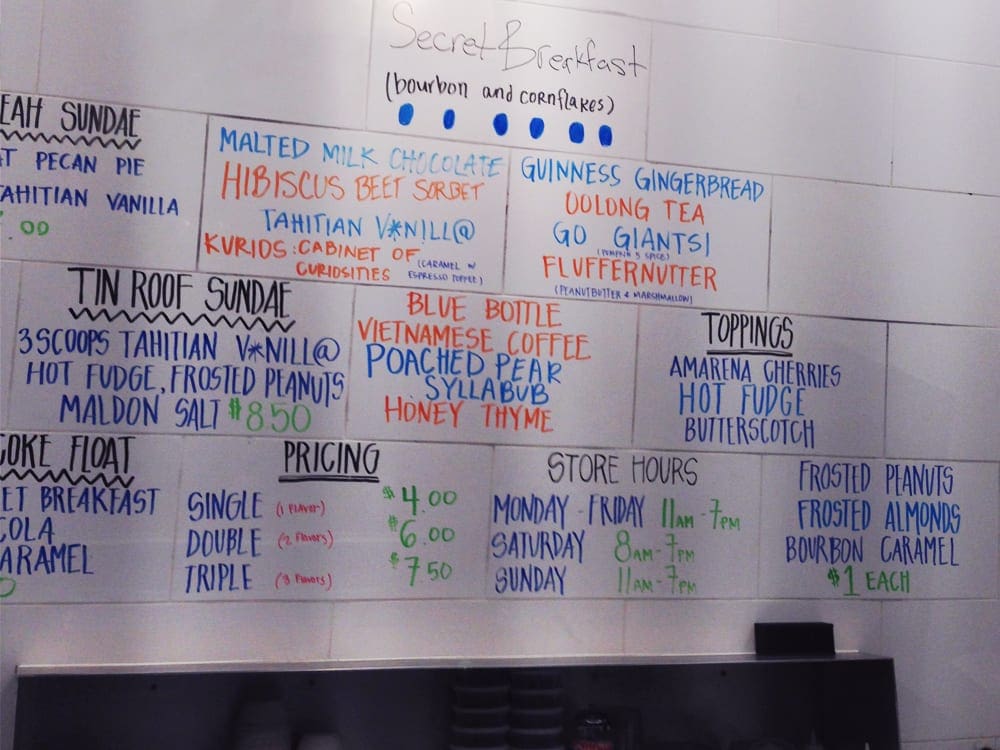 Secret Breakfast
(bourbon and cornflakes)
EAH SUNDAE
PECAN PIE
TAHITIAN VANILLA
.00
MALTED MILK CHOCOLATE
HIBISCUS BEET SORBET
TAHITIAN V*N!LL@
KURIOS: CABINET OF
CURIOSITIES (CARAMEL W/
ESPRESSO TOFFEE)
GUINNESS GINGERBREAD
OOLONG TEA
GO GIANTS!
(PUMPKIN 5 SPICE)
FLUFFERNUTTER
(PEANUTBUTTER & MARSHMALLOW)
TIN ROOF SUNDAE
3 SCOOPS TAHITIAN V*N!LL@
HOT FUDGE, FROSTED PEANUTS
MALDON SALT $8.50
BLUE BOTTLE
VIETNAMESE COFFEE
POACHED PEAR
SYLLABUB
HONEY THYME
TOPPINGS
AMARENA CHERRIES
HOT FUDGE
BUTTERSCOTCH
COKE FLOAT
ET BREAKFAST
COLA
CARAMEL
PRICING
SINGLE (1 Flavor) $4.00
DOUBLE (2 Flavors) $6.00
TRIPLE (3 Flavors) $7.50
STORE HOURS
MONDAY - FRIDAY 11AM - 7PM
SATURDAY 8AM - 7PM
SUNDAY 11AM - 7PM
FROSTED PEANUTS
FROSTED ALMONDS
BOURBON CARAMEL
$1 EACH